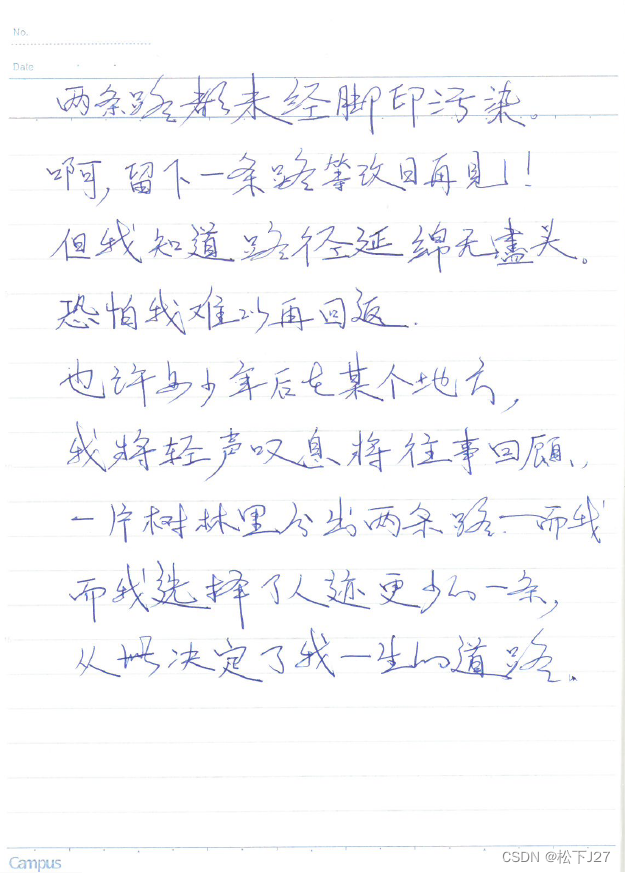 No.
Date
两条路都未经脚印污染。
啊,留下一条路等改日再见!!
但我知道路径延绵无尽头。
恐怕我难以再回返.
也许多少年后在某个地方,
我将轻声叹息将往事回顾,
一片树林里分出两条路——而我
而我选择了人迹更少的一条,
从此决定了我一生的道路.
Campus
CSDN @松下J27